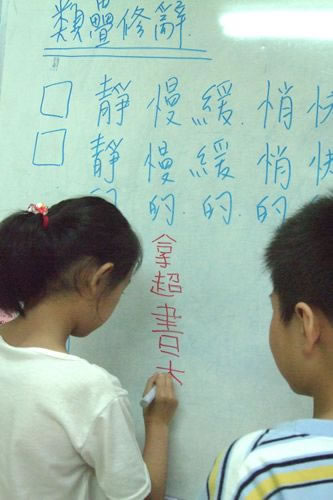 類疊修辭
靜靜的
慢慢的
緩緩的
悄悄的
快快
拿超書大